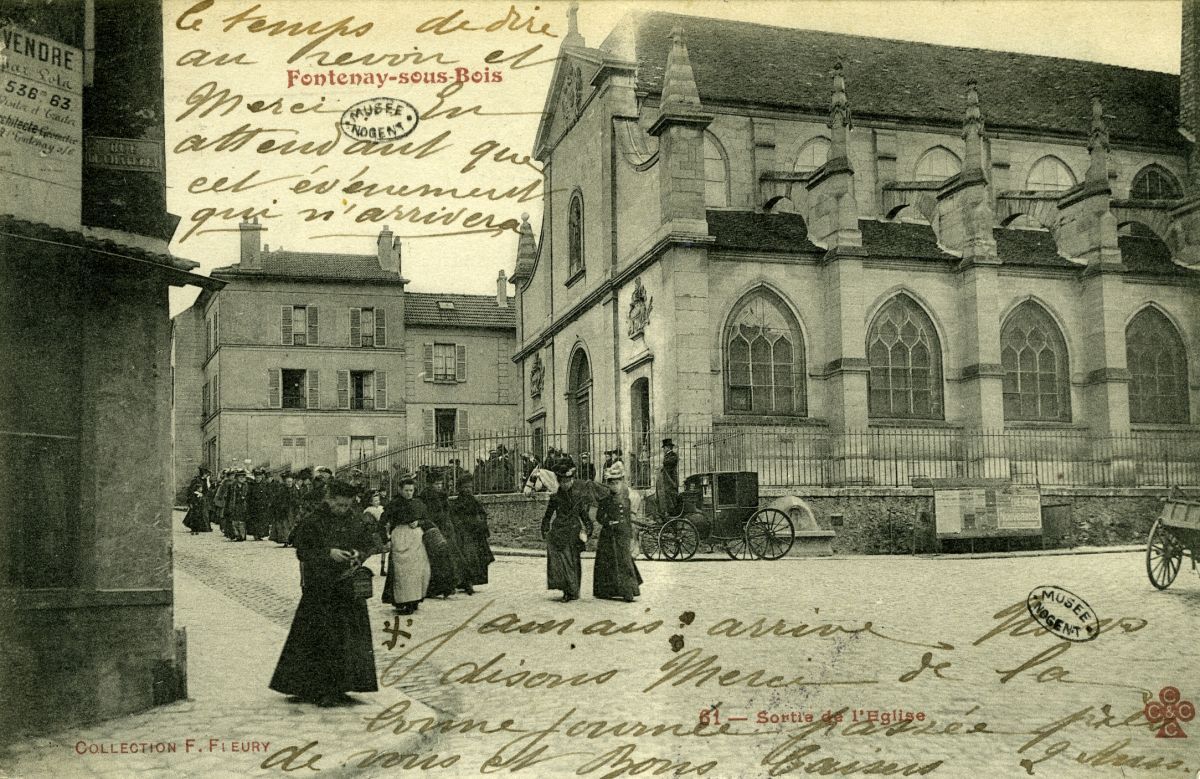 le temps de dire
au revoir et
Merci. En
attendant que
cet événement
qui n'arrivera
Fontenay-sous-Bois
MUSEE
NOGENT
VENDRE
536 m 63
RUE
jamais arrive Nous
disons Merci de la
bonne journée passée près
de vous et Bons baisers
MUSEE
NOGENT
61 — Sortie de l'Eglise
COLLECTION F. FLEURY